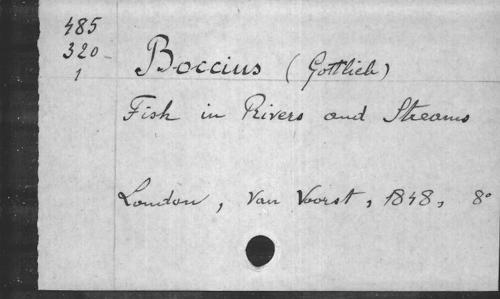 485
320
1
Boccius (Gottlieb)
Fish in Rivers and Streams
London, Van Voorst, 1848, 8°